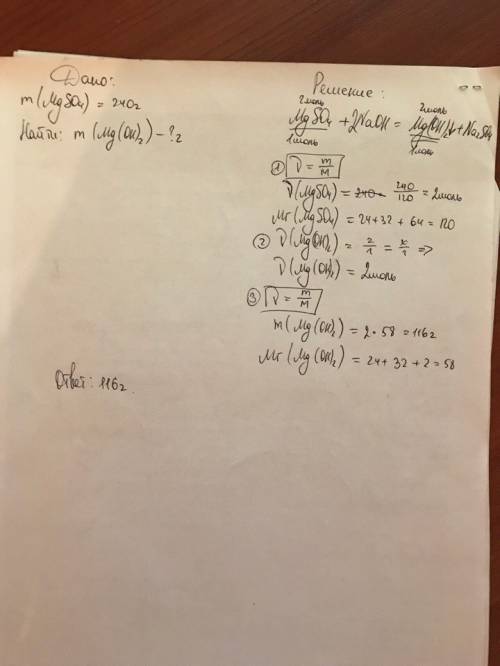 Дано:
m(MgSO₄) = 240г
Найти: m(Mg(OH)₂) - ?г
Решение:
2моль 2моль
MgSO₄ + 2NaOH = Mg(OH)₂↓ + Na₂SO₄
1моль 1моль
① ν = m/M
ν(MgSO₄) = 240/120 = 2моль
Mr(MgSO₄) = 24+32 + 64 = 120
② ν(Mg(OH)₂) = 2/1 = x/1 =>
ν(Mg(OH)₂) = 2моль
③ ν = m/M
m(Mg(OH)₂) = 2·58 = 116г
Mr(Mg(OH)₂) = 24+32+2=58
Ответ: 116г.